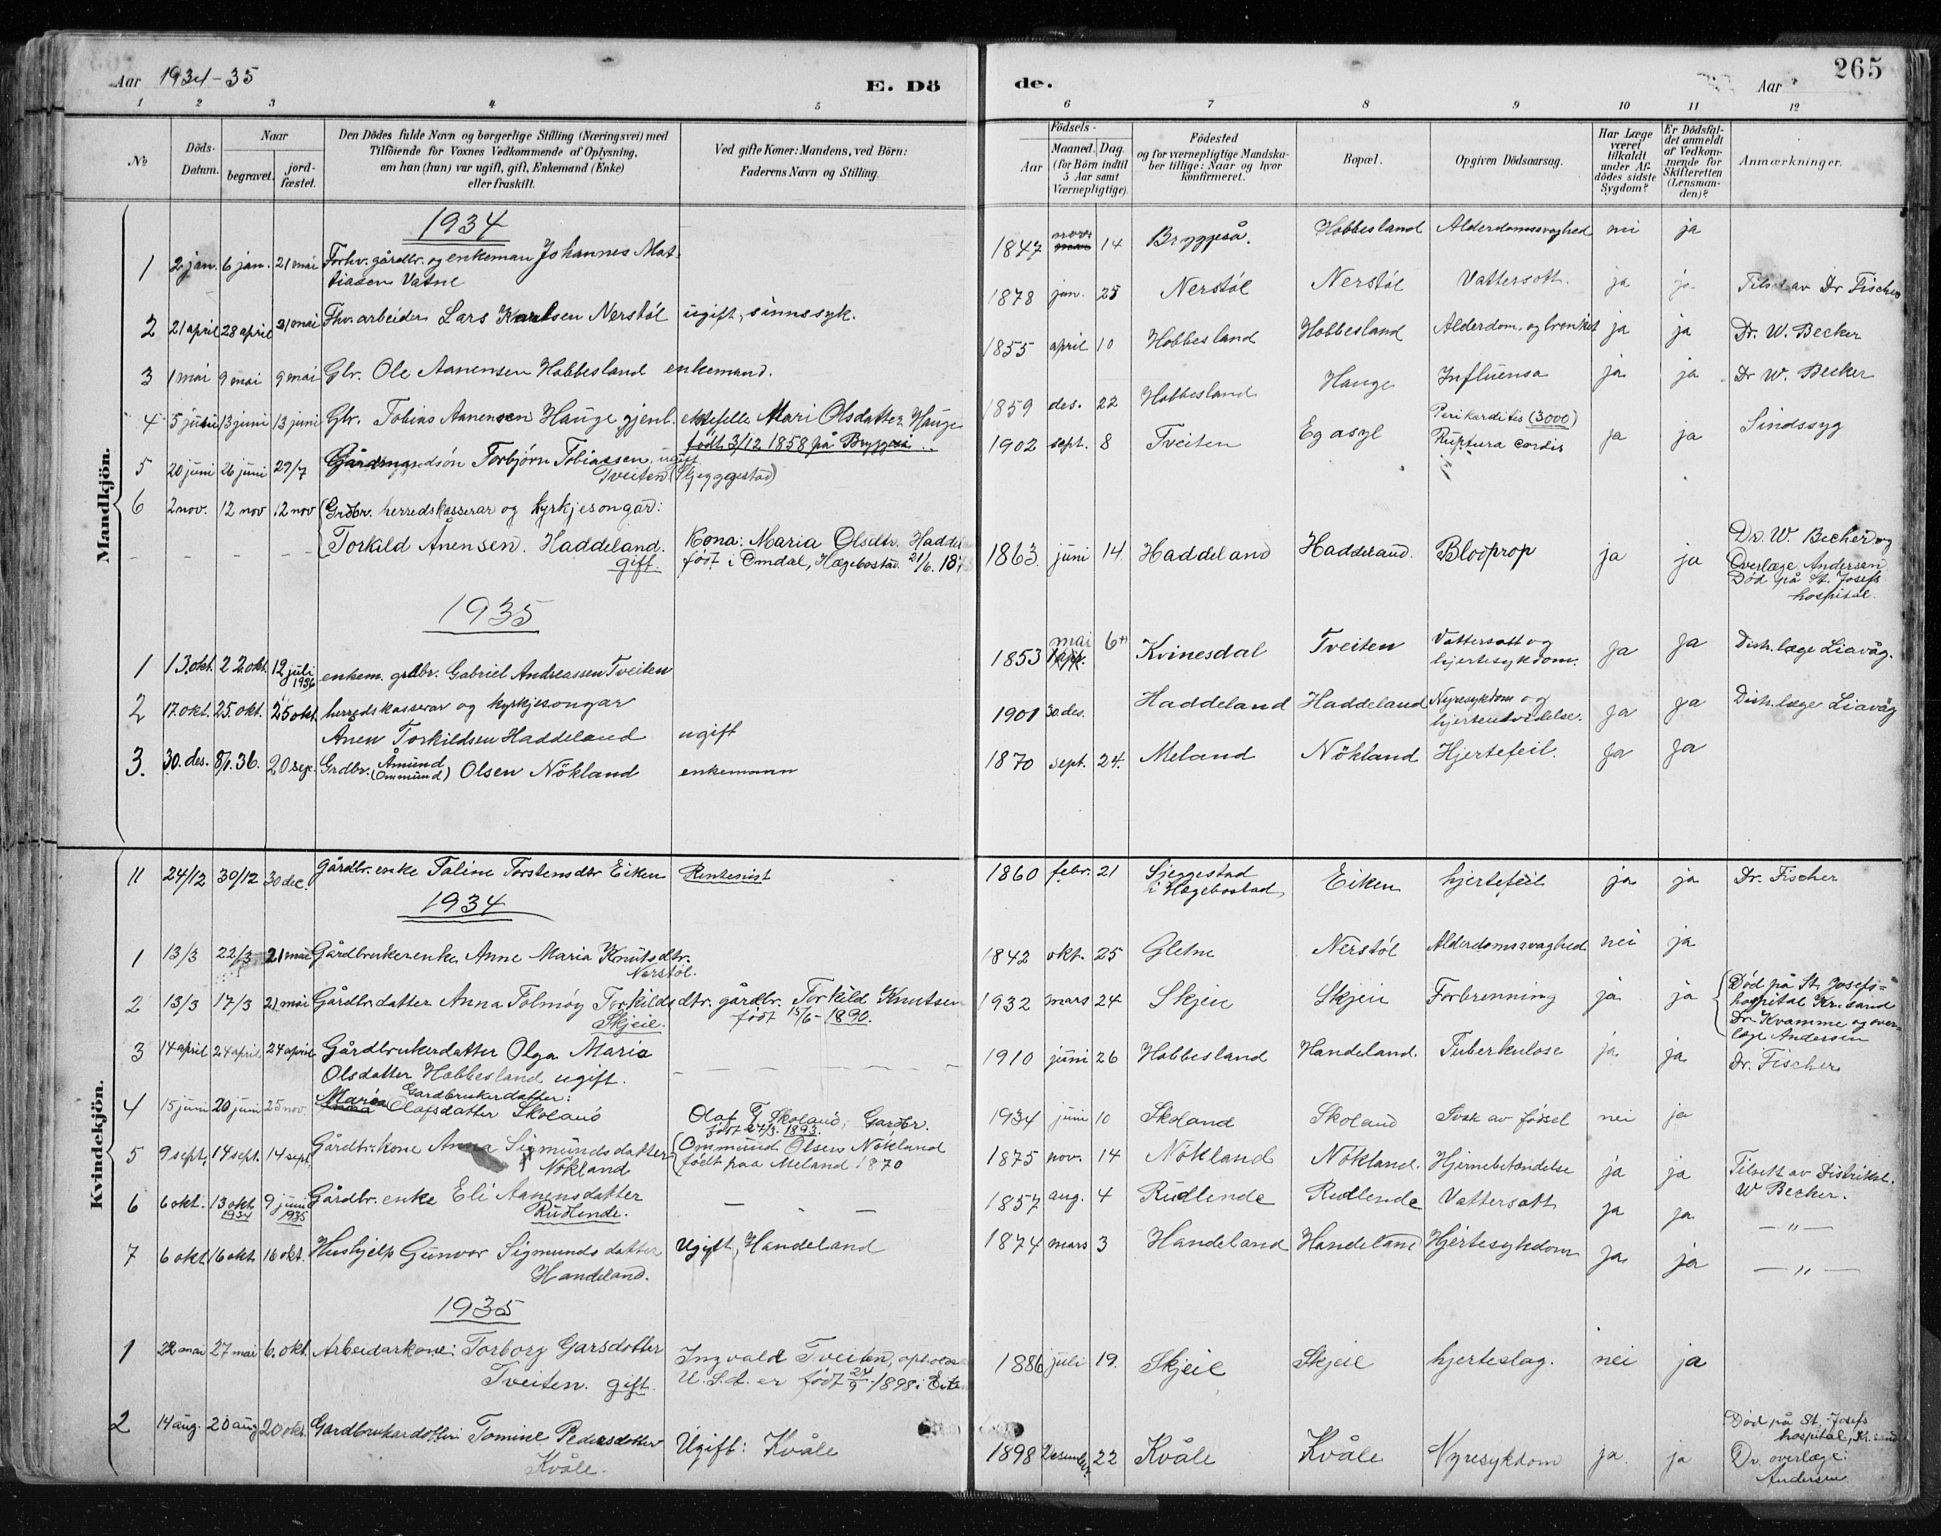 Aar 1934-35
E. Dö
de.
Aar
265
1 2 3 4 5 6 7 8 9 10 11 12
No
Döds-Datum.
Naar
begravet.
jord-fæstet.
Den Dödes fulde Navn og borgerlige Stilling (Næringsvei) med
Tilföiende for Voxnes Vedkommende af Oplysning,
om han (hun) var ugift, gift, Enkemand (Enke)
eller fraskilt.
Ved gifte Koner: Mandens, ved Börn:
Faderens Navn og Stilling.
Födsels-
Aar
Maaned. Dag.
(for Börn indtil
5 Aar samt
Værnepligtige).
Födested
og for værnepligtige Mandska-
ber tillige: Naar og hvor
konfirmeret.
Bopæl.
Opgiven Dödsaarsag.
Har Læge
været
tilkaldt
under Af-
dödes sidste
Sygdom?
Er Dödsfal-
det anmeldt
af Vedkom-
mende for
Skifteretten
(Lensman-
den)?
Anmærkninger.
Mandkjön.
1934
1 2 jan. 6 jan. 21 mai Forhv. gårdbr. og enkeman Johannes Mat-
tiasen Vatne
1847 nov. 14 Bryggeså. Hobbesland Alderdomssvaghed nei ja
2 21 april 28 april 21 mai Fhv. arbeider Lars Karlsen Nerstøl ugift, sinnssyk.
1878 jan. 25 Nerstøl Nerstøl Vattersott. ja ja Tils. av Dr Fischer
3 1 mai 9 mai 9 mai Gbr. Ole Aanensen Hobbesland enkemand.
1855 april 10 Hobbesland Hobbesland Alderdom. og bronkit ja ja Dr. W. Becker
4 5 juni 13 juni 13 juni Gbr. Tobias Aanensen Hauge gjenl. ektefelle Mari Olsdatter Hauge
født 3/12 1858 på Bryggeså
1859 des. 22 Hobbesland Hauge Influensa ja ja Dr W. Becker
5 20 juni 26 juni 29/7 Gårdmandsön Torbjørn Tobiassen, ugift
Tveiten (Skjeggestad)
1902 sept. 8 Tveiten Eg asyl Perikarditis (3000)
Ruptura cordis ja ja Sindssyg
6 2 nov. 12 nov 12 nov Grdbr. herredskasserar og kyrkjesongar:
Torkild Ånensen. Haddeland.
gift.
Kona: Maria Olsdtr.
født i Omdal, Hægebostad 21/6.
1863 juni 14. Haddeland Haddeland. Blodprop ja ja Dr. W. Becher og
Overlæge Andersen
Død på St. Josefs
hospital.
1935
1 13. okt. 22. okt. 12 juli
1936 enkem. grdbr. Gabriel Andreassen Tveiten
1853 mai 6 Kvinesdal Tveiten Vattersott og
hjertesykdom. Ja Ja Distr. læge Liavåg.
2 17. okt. 25. okt. 25 okt. herredskasserar og kyrkjesongar
Ånen Torkildsen Haddeland ugift
1901 30. des. Haddeland Haddeland Nyresykdom og
hjerteutvidelse. Ja Ja Distr. læge Liavåg
3. 30. des. 8/1. 36. 20 sep. Grdbr. Åmund
(Ommund) Olsen Nökland enkemann
1870 sept. 24. Meland Nökland Hjertefeil. Ja Ja
Kvindekjön.
11 24/12 30/12 30 dec. Gårdbr. enke Taline Torstensdtr Eiken Rentenist
1860 febr. 21 Sjeggestad
i Hægebostad, Eiken hjertefeil ja ja Dr. Fischer
1934
1 13/3 22/3 21 mai Gårdbrukerenke Anne Maria Knutsdtr.
Nerstøl.
1842 okt. 25 Gletne Nerstøl Alderdomssvaghed nei ja
2 13/3 17/3 21 mai Gårdbr. datter Anna Tolmøy Torkildsdtr. gårdbr. Torkild Knutsen
Skjeie. født 15/6-1890.
1932 mars 24 Skjeie Skjeie Forbrenning ja ja Død på St. Josefs-
hospital Kr. sand
Dr. Kvamme og over-
læge Andersen
3 14 april 24 april 24 april Gårdbrukerdatter Olga Maria
Olsdatter Hobbesland ugift.
1910 juni 26 Hobbesland Handeland. Tuberkulose ja ja Dr. Fischer
4 15 juni 20 juni 25 nov. Gardbrukerdatter:
Maria Olafsdatter Skoland
Olaf T. Skoland, Gardbr.
født 24/3. 1893.
1934 juni 10 Skoland Skoland Svak av fødsel nei ja
5 9 sept. 14 sept. 14 sept. Gårdbr. kone Anna Sigmundsdatter
Nökland
Ommund Olsen Nökland
født paa Meland 1870
1875 nov. 14 Nökland Nökland. Hjernebetendelse ja ja Tilsett av Distriktsl.
W Becker.
6 6 okt. 13 okt. 1934 9 juni 1935 Gårdbr. enke Eli Aanensdatter
Rudlende.
1857 aug. 4 Rudlende Rudlende Vattersott ja ja — " —
7 6 okt 16 okt. 16 okt. Hushjelp Gunvor Sigmundsdatter Ugift, Handeland
Handeland.
1874 mars 3 Handeland Handeland Hjertesykdom ja ja — " —
1935
1 22 mai 27 mai 6. okt. Arbeidarkone: Torborg Garsdotter
Tveiten. gift.
Ingvald Tveiten,
U.S.A. er født 24/9 1898 i
1886 juli 19. Skjeie Skjeie hjerteslag. nei ja
2 14 aug. 20 aug 20 okt. Gardbrukardotter Tomine Pedersdotter Ugift: Kvåle
Kvåle.
1898 Desember 22 Kvåle Kvåle Nyresykdom ja ja Død på St. Josefs
hospital,
Dr. overlæge:
Andersen